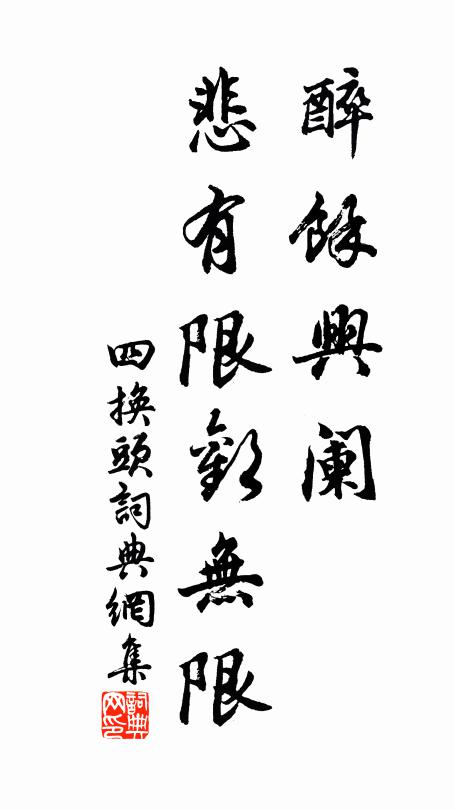 醉餘興闌
悲有限歡無限
四換頭詞典網集
詞典网印